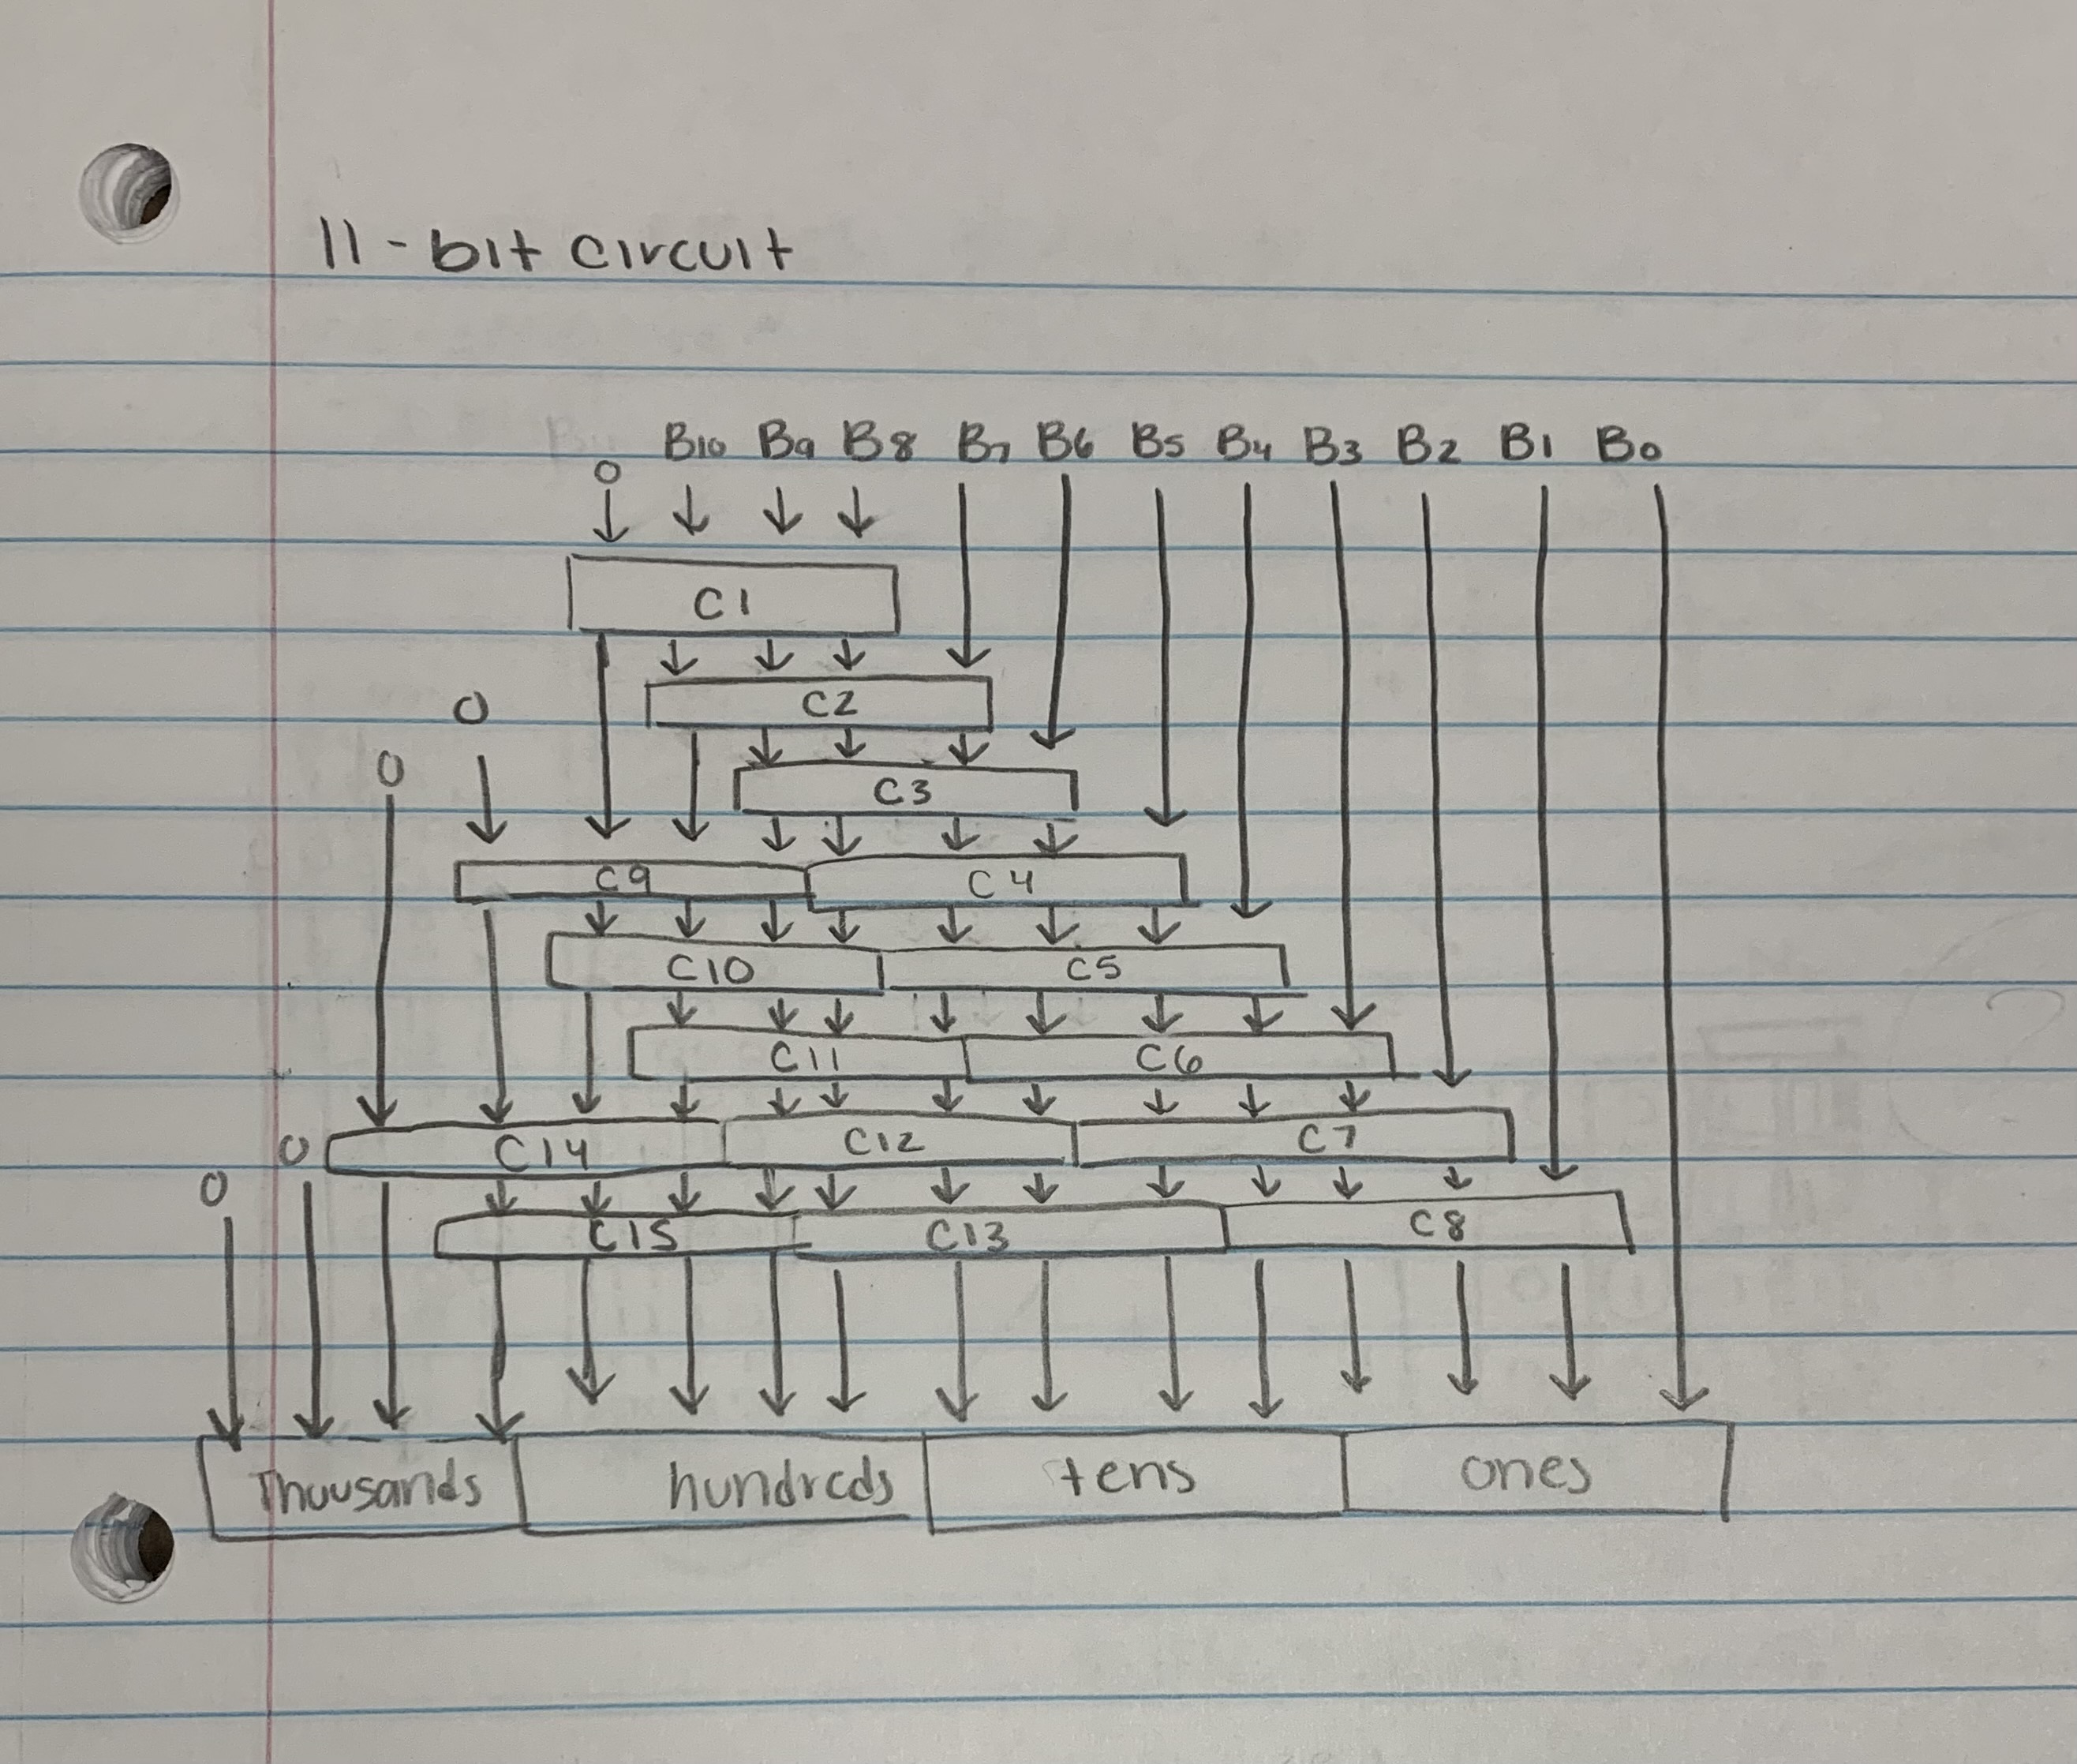 11-bit circuit
B10 B9 B8 B7 B6 B5 B4 B3 B2 B1 B0
0
C1
C2
0
0
C3
C9 C4
C10 C5
C11 C6
C14 C12 C7
0
0
C15 C13 C8
Thousands hundreds tens ones